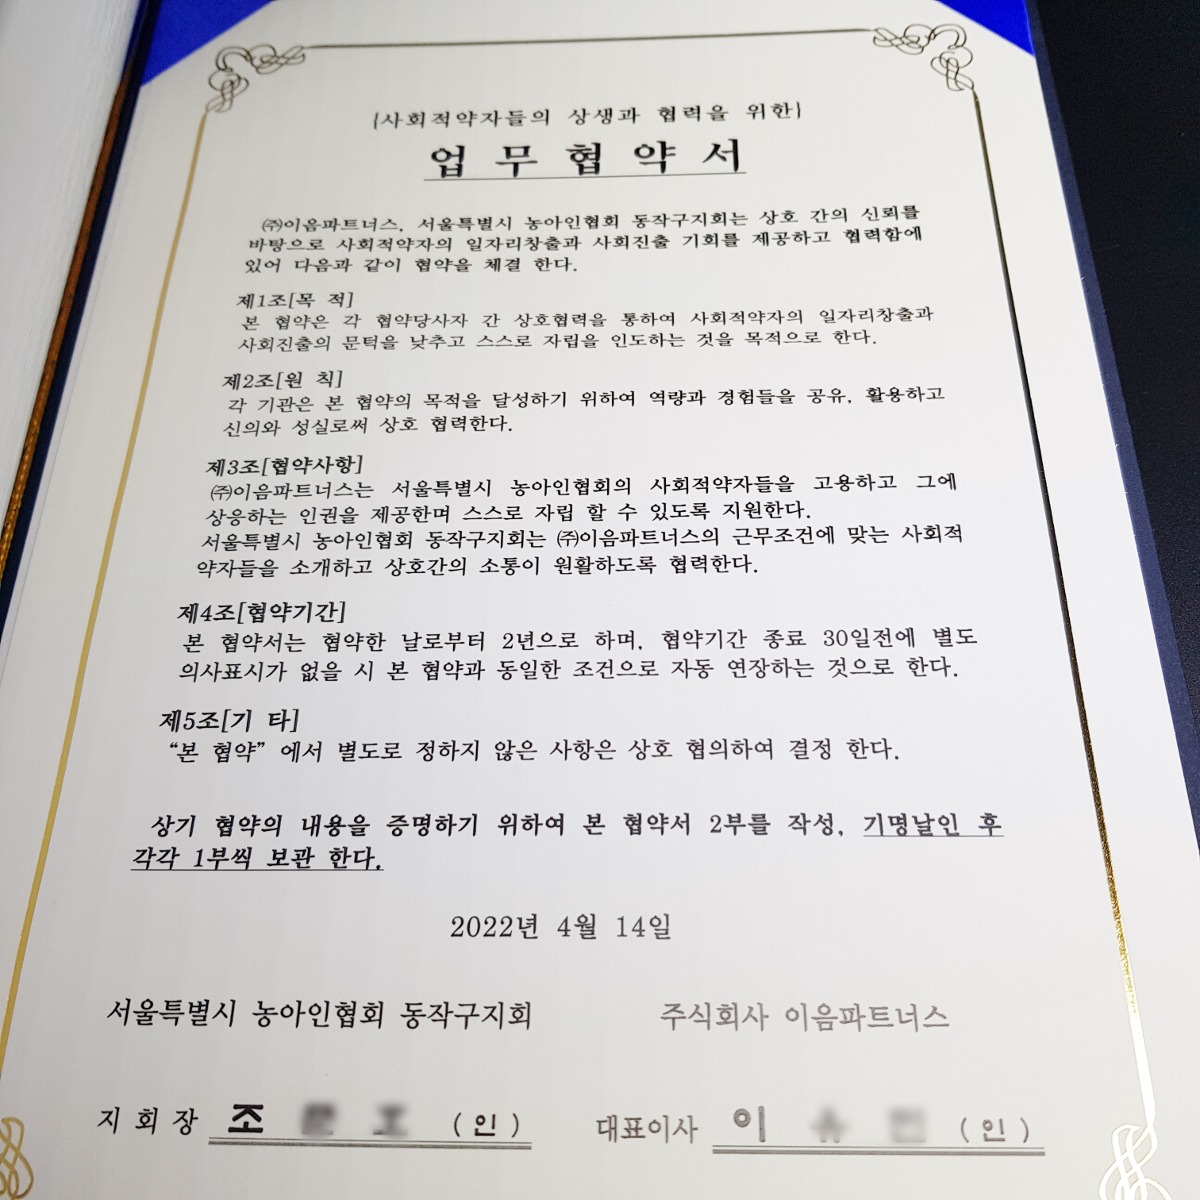 [사회적약자들의 상생과 협력을 위한]
업 무 협 약 서
㈜이음파트너스, 서울특별시 농아인협회 동작구지회는 상호 간의 신뢰를
바탕으로 사회적약자의 일자리창출과 사회진출 기회를 제공하고 협력함에
있어 다음과 같이 협약을 체결 한다.
제1조[목 적]
본 협약은 각 협약당사자 간 상호협력을 통하여 사회적약자의 일자리창출과
사회진출의 문턱을 낮추고 스스로 자립을 인도하는 것을 목적으로 한다.
제2조[원 칙]
각 기관은 본 협약의 목적을 달성하기 위하여 역량과 경험들을 공유, 활용하고
신의와 성실로써 상호 협력한다.
제3조[협약사항]
㈜이음파트너스는 서울특별시 농아인협회의 사회적약자들을 고용하고 그에
상응하는 인권을 제공한며 스스로 자립 할 수 있도록 지원한다.
서울특별시 농아인협회 동작구지회는 ㈜이음파트너스의 근무조건에 맞는 사회적
약자들을 소개하고 상호간의 소통이 원활하도록 협력한다.
제4조[협약기간]
본 협약서는 협약한 날로부터 2년으로 하며, 협약기간 종료 30일전에 별도
의사표시가 없을 시 본 협약과 동일한 조건으로 자동 연장하는 것으로 한다.
제5조[기 타]
“본 협약” 에서 별도로 정하지 않은 사항은 상호 협의하여 결정 한다.
상기 협약의 내용을 증명하기 위하여 본 협약서 2부를 작성, 기명날인 후
각각 1부씩 보관 한다.
2022년 4월 14일
서울특별시 농아인협회 동작구지회 주식회사 이음파트너스
지 회 장 조 (인) 대표이사 이 (인)